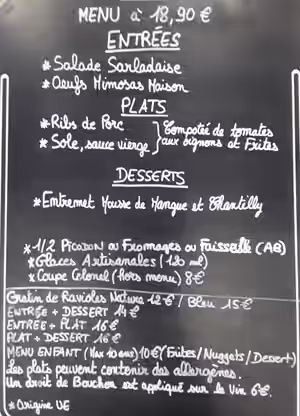 MENU à 18,90 €
ENTRÉES
* Salade Sarladaise
* Oeufs Mimosas Maison
PLATS
* Ribs de Porc
* Sole, sauce vierge
Compotée de tomates
aux oignons et Frites
DESSERTS
* Entremet Mousse de Mangue et Chantilly
* 1/2 PICODON ou Fromages ou Faisselle (AB)
* Glaces Artisanales (120 ml)
* Coupe Colonel (hors menu) 8€
Gratin de Ravioles Nature 12€ / Bleu 15€
ENTRÉE + DESSERT 14€
ENTRÉE + PLAT 16€
PLAT + DESSERT 16€
MENU ENFANT (Max 10 ans) 10€ (Frites/Nuggets/Dessert)
Les plats peuvent contenir des allergènes.
Un droit de Bouchon est appliqué sur le vin 6€.
* Origine UE